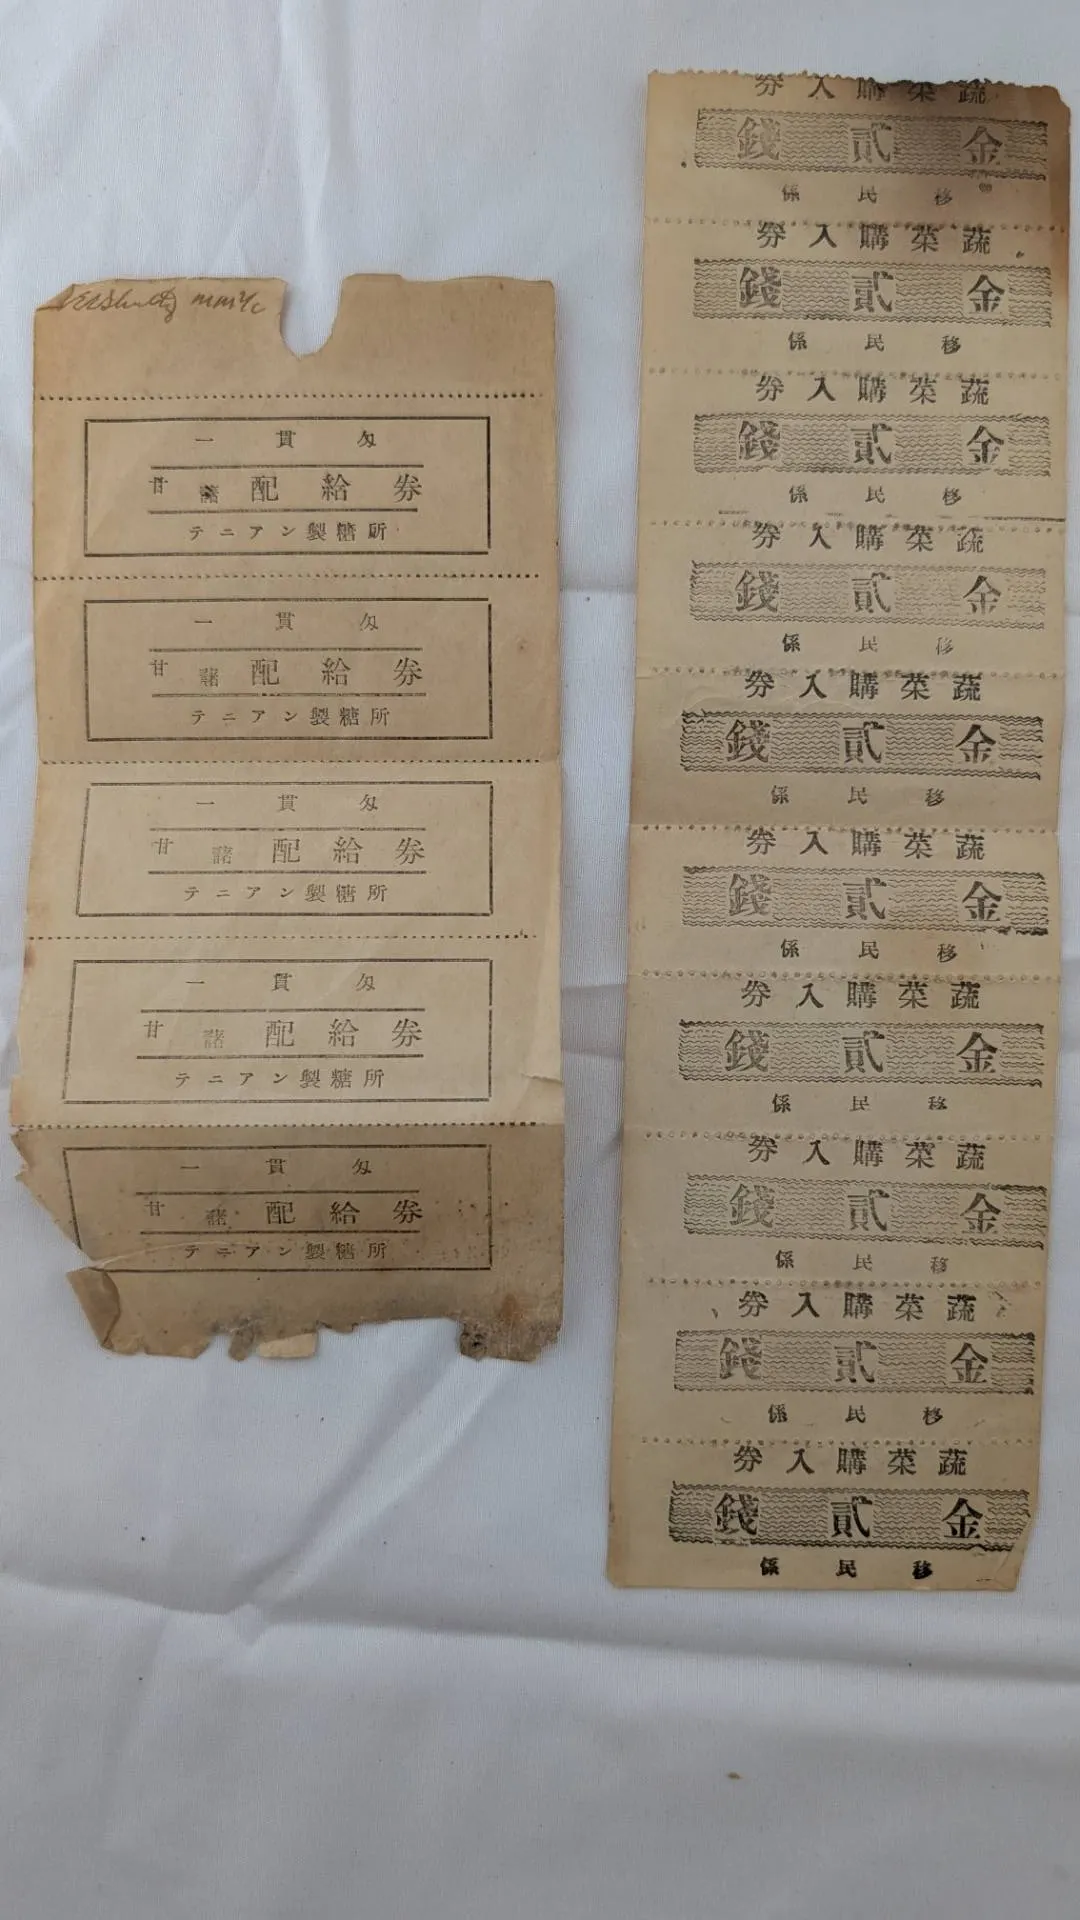 一貫匁
甘藷配給券
テニアン製糖所
一貫匁
甘藷配給券
テニアン製糖所
一貫匁
甘藷配給券
テニアン製糖所
一貫匁
甘藷配給券
テニアン製糖所
一貫匁
甘藷配給券
テニアン製糖所
蔬菜購入券
金貳錢
移民係
蔬菜購入券
金貳錢
移民係
蔬菜購入券
金貳錢
移民係
蔬菜購入券
金貳錢
移民係
蔬菜購入券
金貳錢
移民係
蔬菜購入券
金貳錢
移民係
蔬菜購入券
金貳錢
移民係
蔬菜購入券
金貳錢
移民係
蔬菜購入券
金貳錢
移民係
蔬菜購入券
金貳錢
移民係